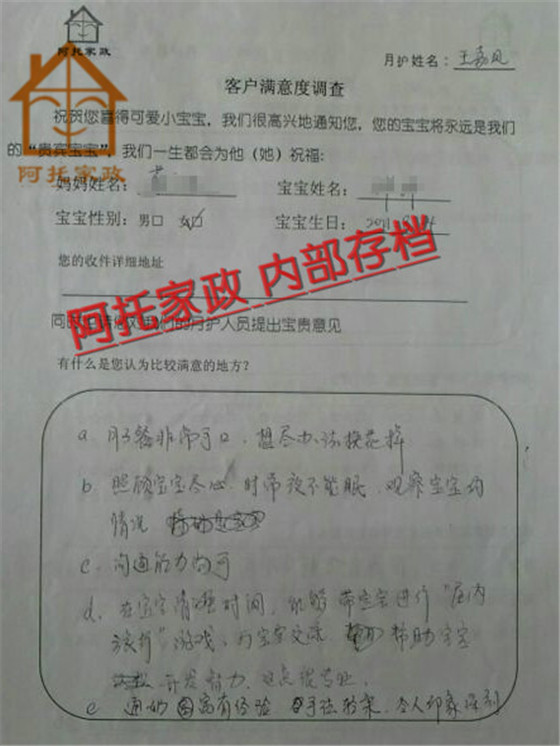 阿托家政
月护姓名：王嘉凤
客户满意度调查
祝贺您喜得可爱小宝宝，我们很高兴地通知您，您的宝宝将永远是我们
的“贵宾宝宝”，我们一生都会为他（她）祝福：
阿托家政
妈妈姓名： 宝宝姓名：
宝宝性别：男□ 女□ 宝宝生日：2011
您的收件详细地址
阿托家政 内部存档
同时 请您对我们的月护人员提出宝贵意见
有什么是您认为比较满意的地方？
a 月子餐非常可口，想尽办法换花样
b 照顾宝宝尽心，时常夜不能眠，观察宝宝的
情况
c、沟通能力尚可
d、在宝宝清醒时间，能够带宝宝进行“屋内
旅行”游戏，与宝宝交流 帮助宝宝
开发智力，观点很专业。
e 通奶 富有经验 手法 ，令人印象深刻